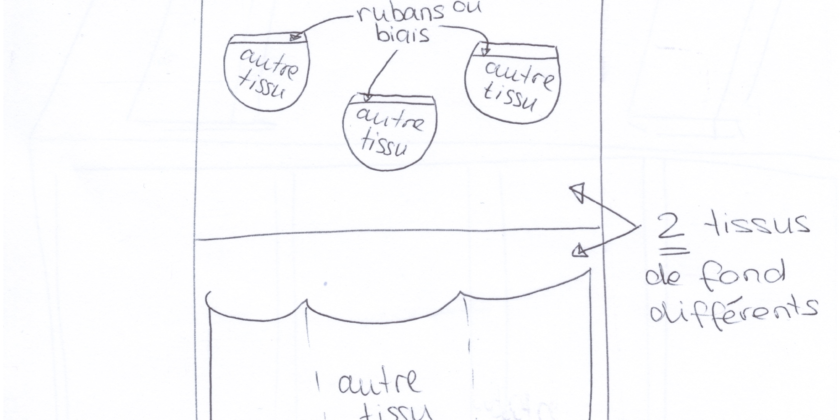 rubans ou
biais
autre
tissu
autre
tissu
autre
tissu
2 tissus
de fond
différents
autre
tissu